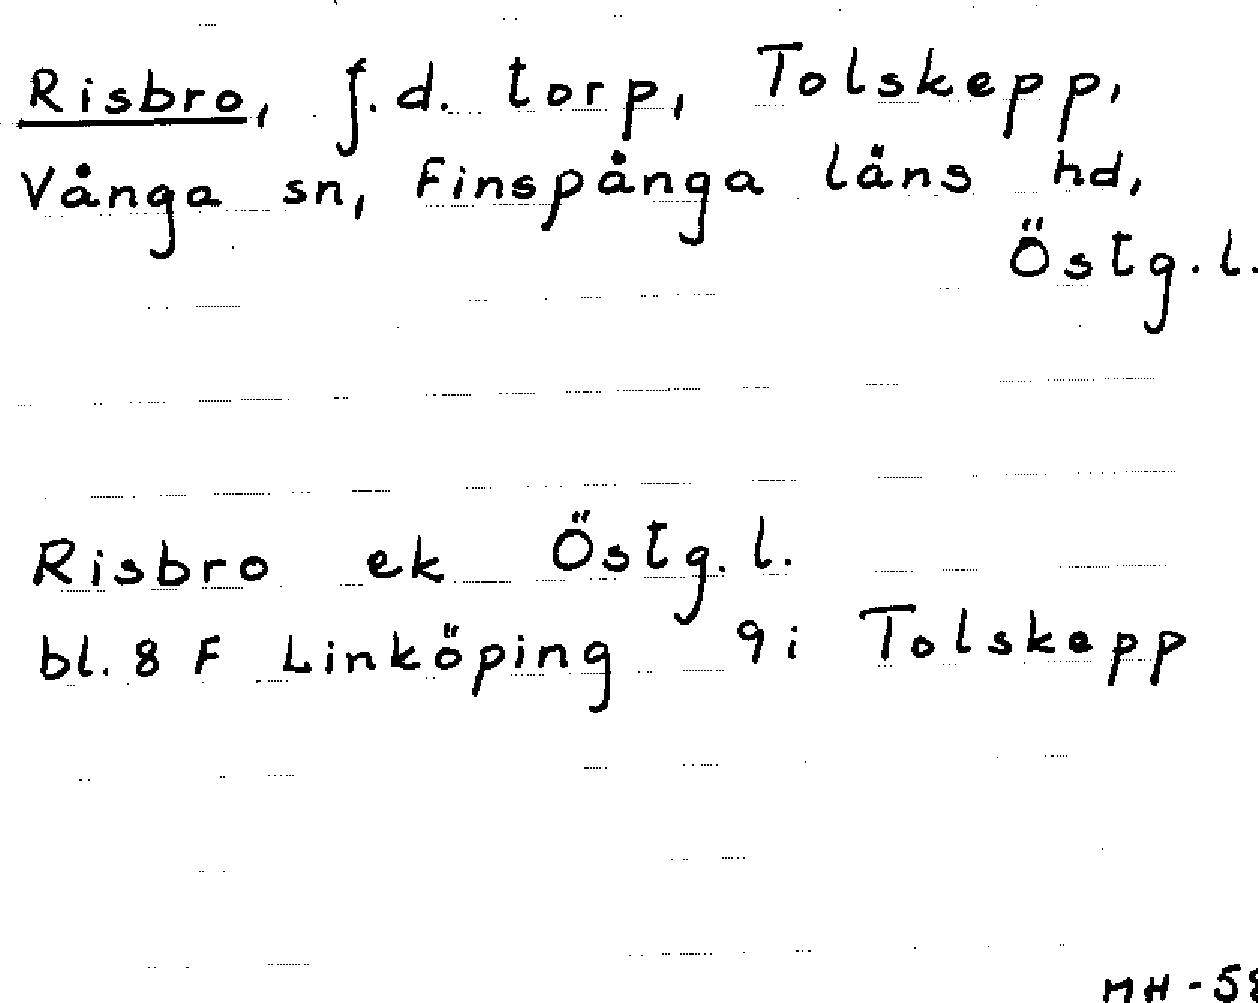 Risbro, f.d. torp, Tolskepp,
Vånga sn, Finspånga läns hd,
Östg.l.
Risbro ek Östg.l.
bl. 8 F Linköping 9 i Tolskepp
MH-58